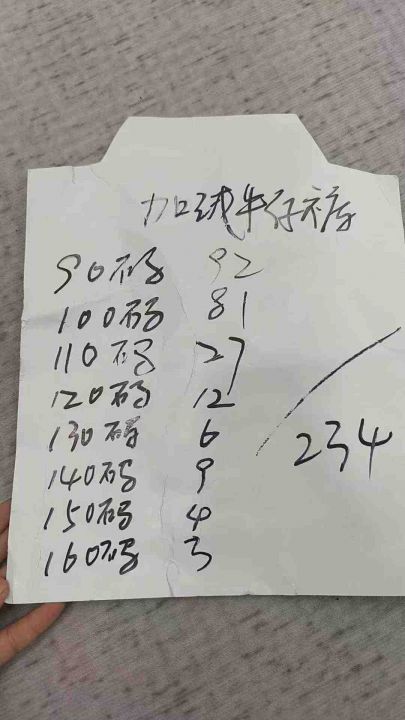 加绒牛仔裤
90码 92
100码 81
110码 27
120码 12
130码 6
140码 9
150码 4
160码 3
234